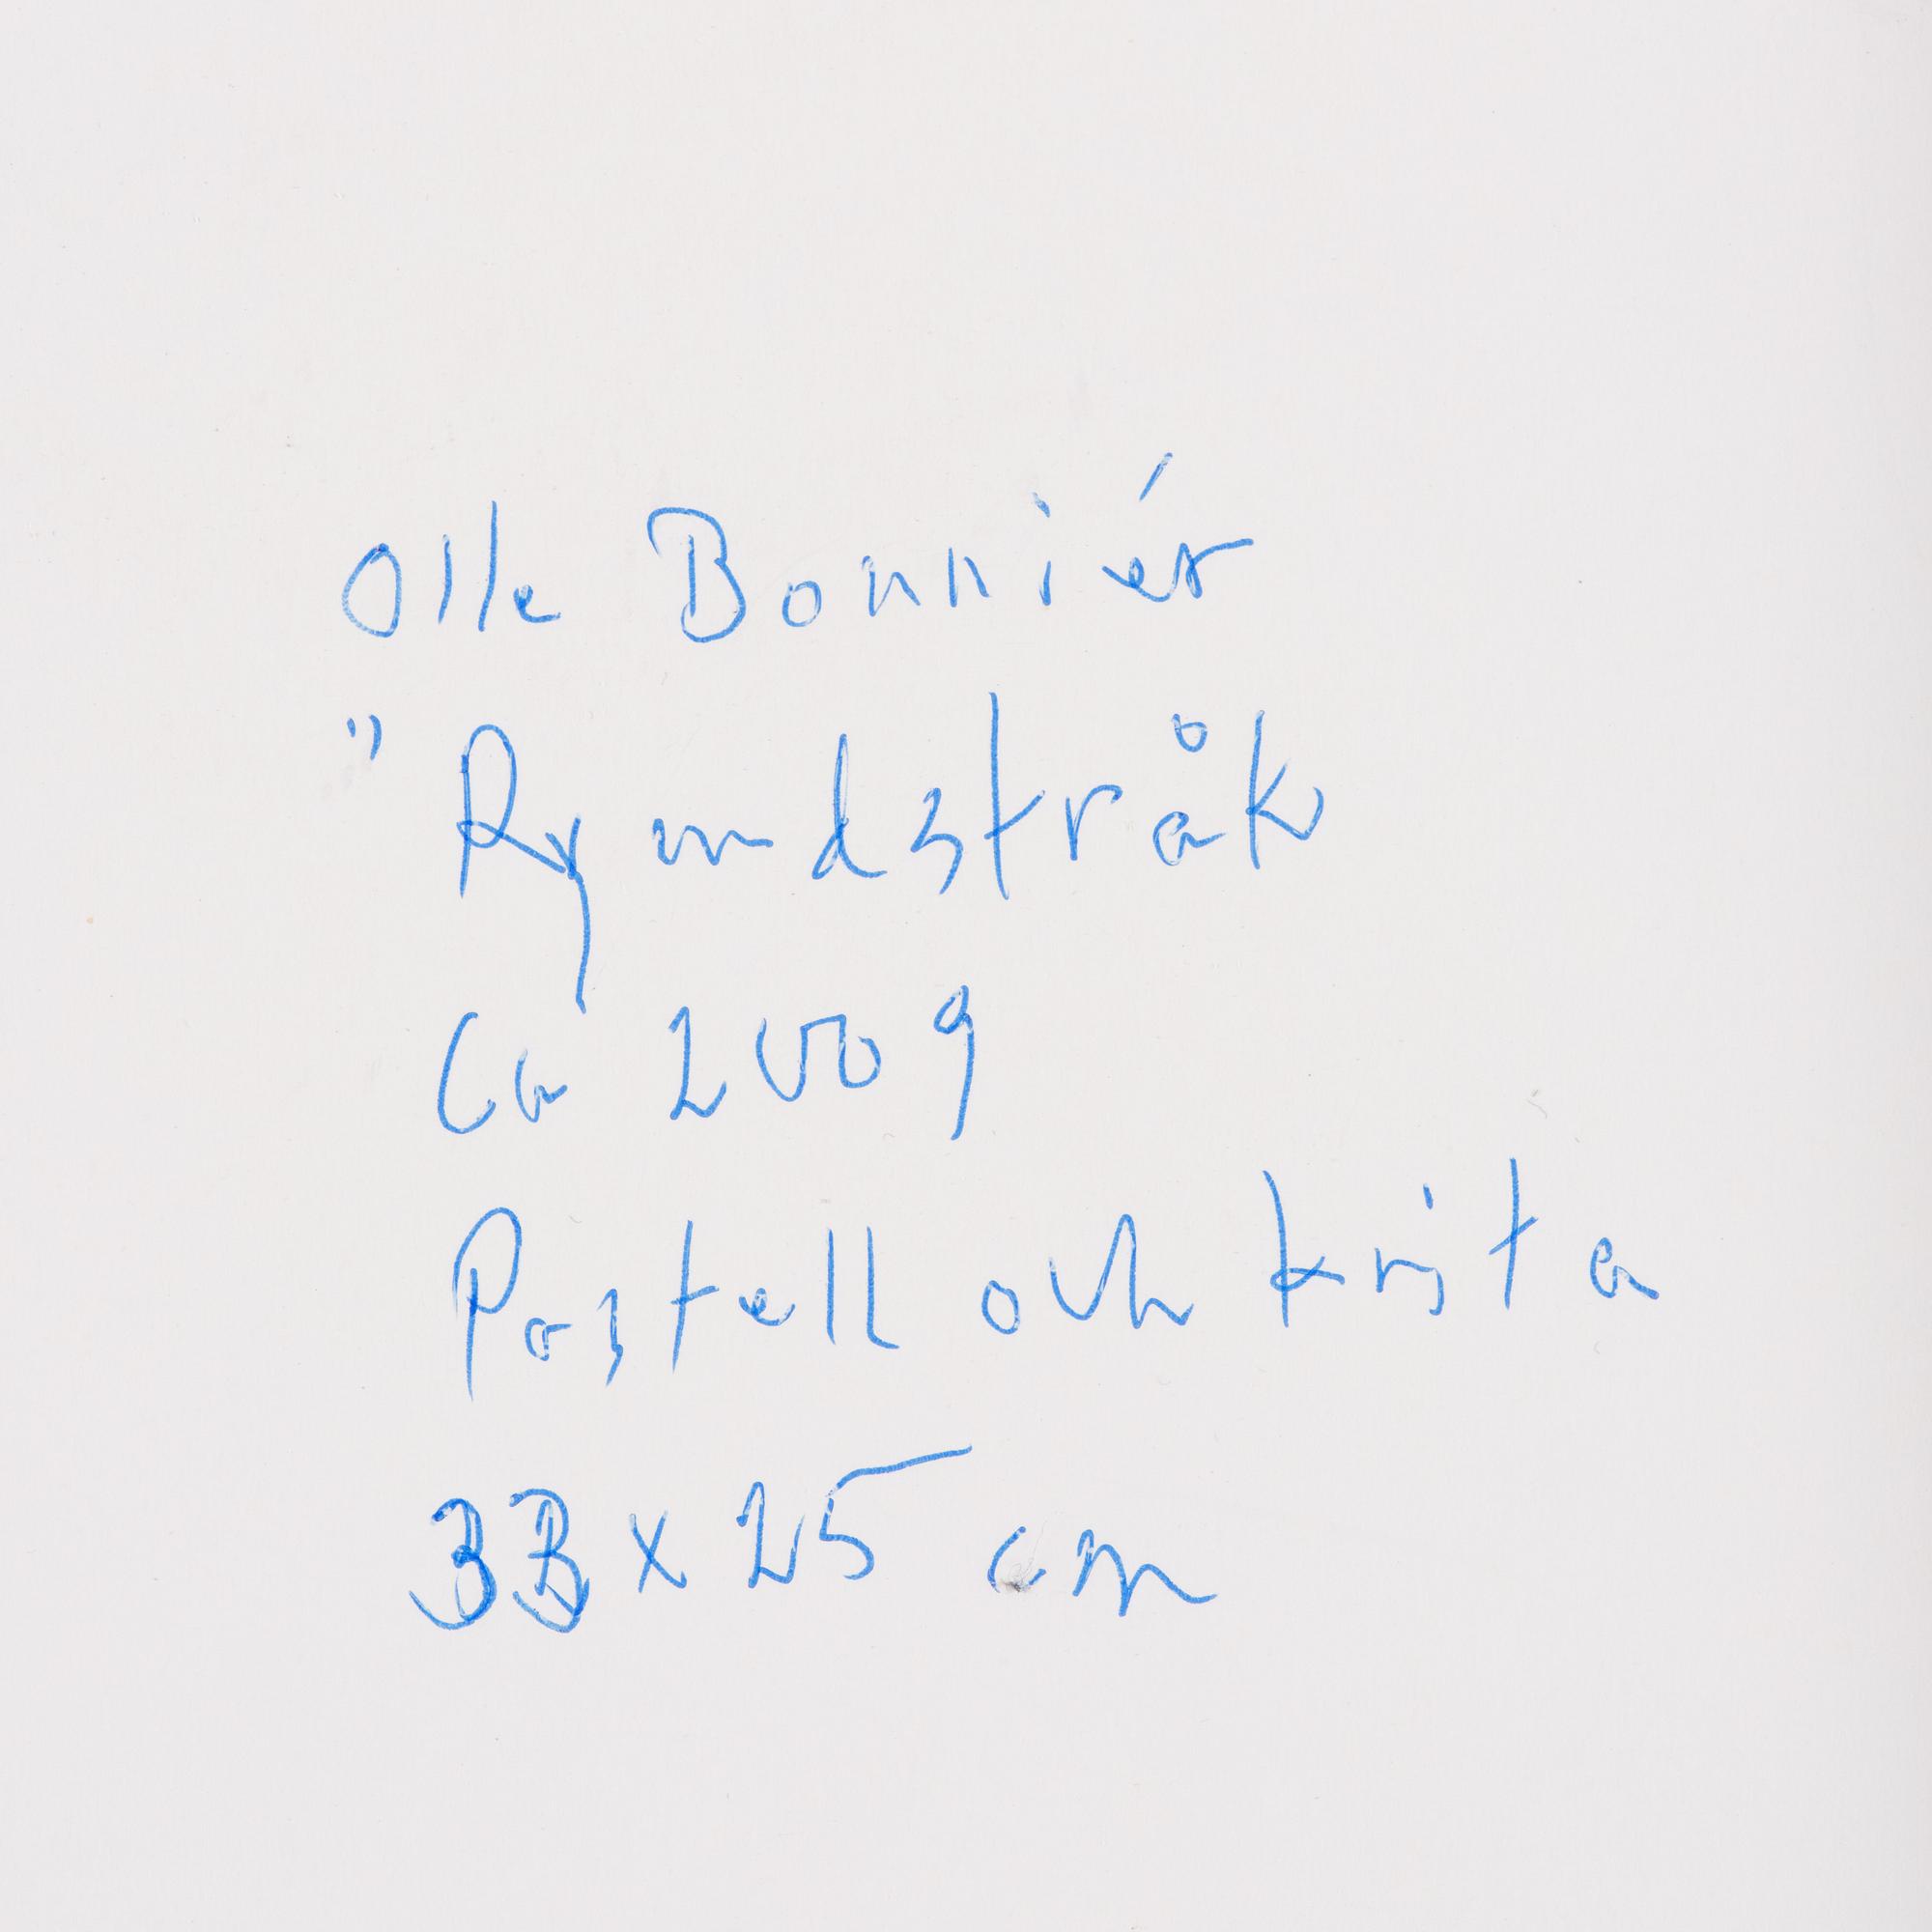 Olle Bonniér
"Rymdstråk
Ca 2009
Pastell och krita
33 x 25 cm